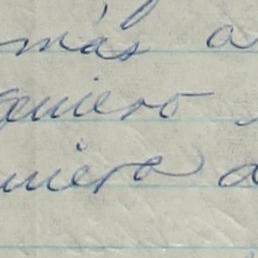 más a
quiero
uiera a